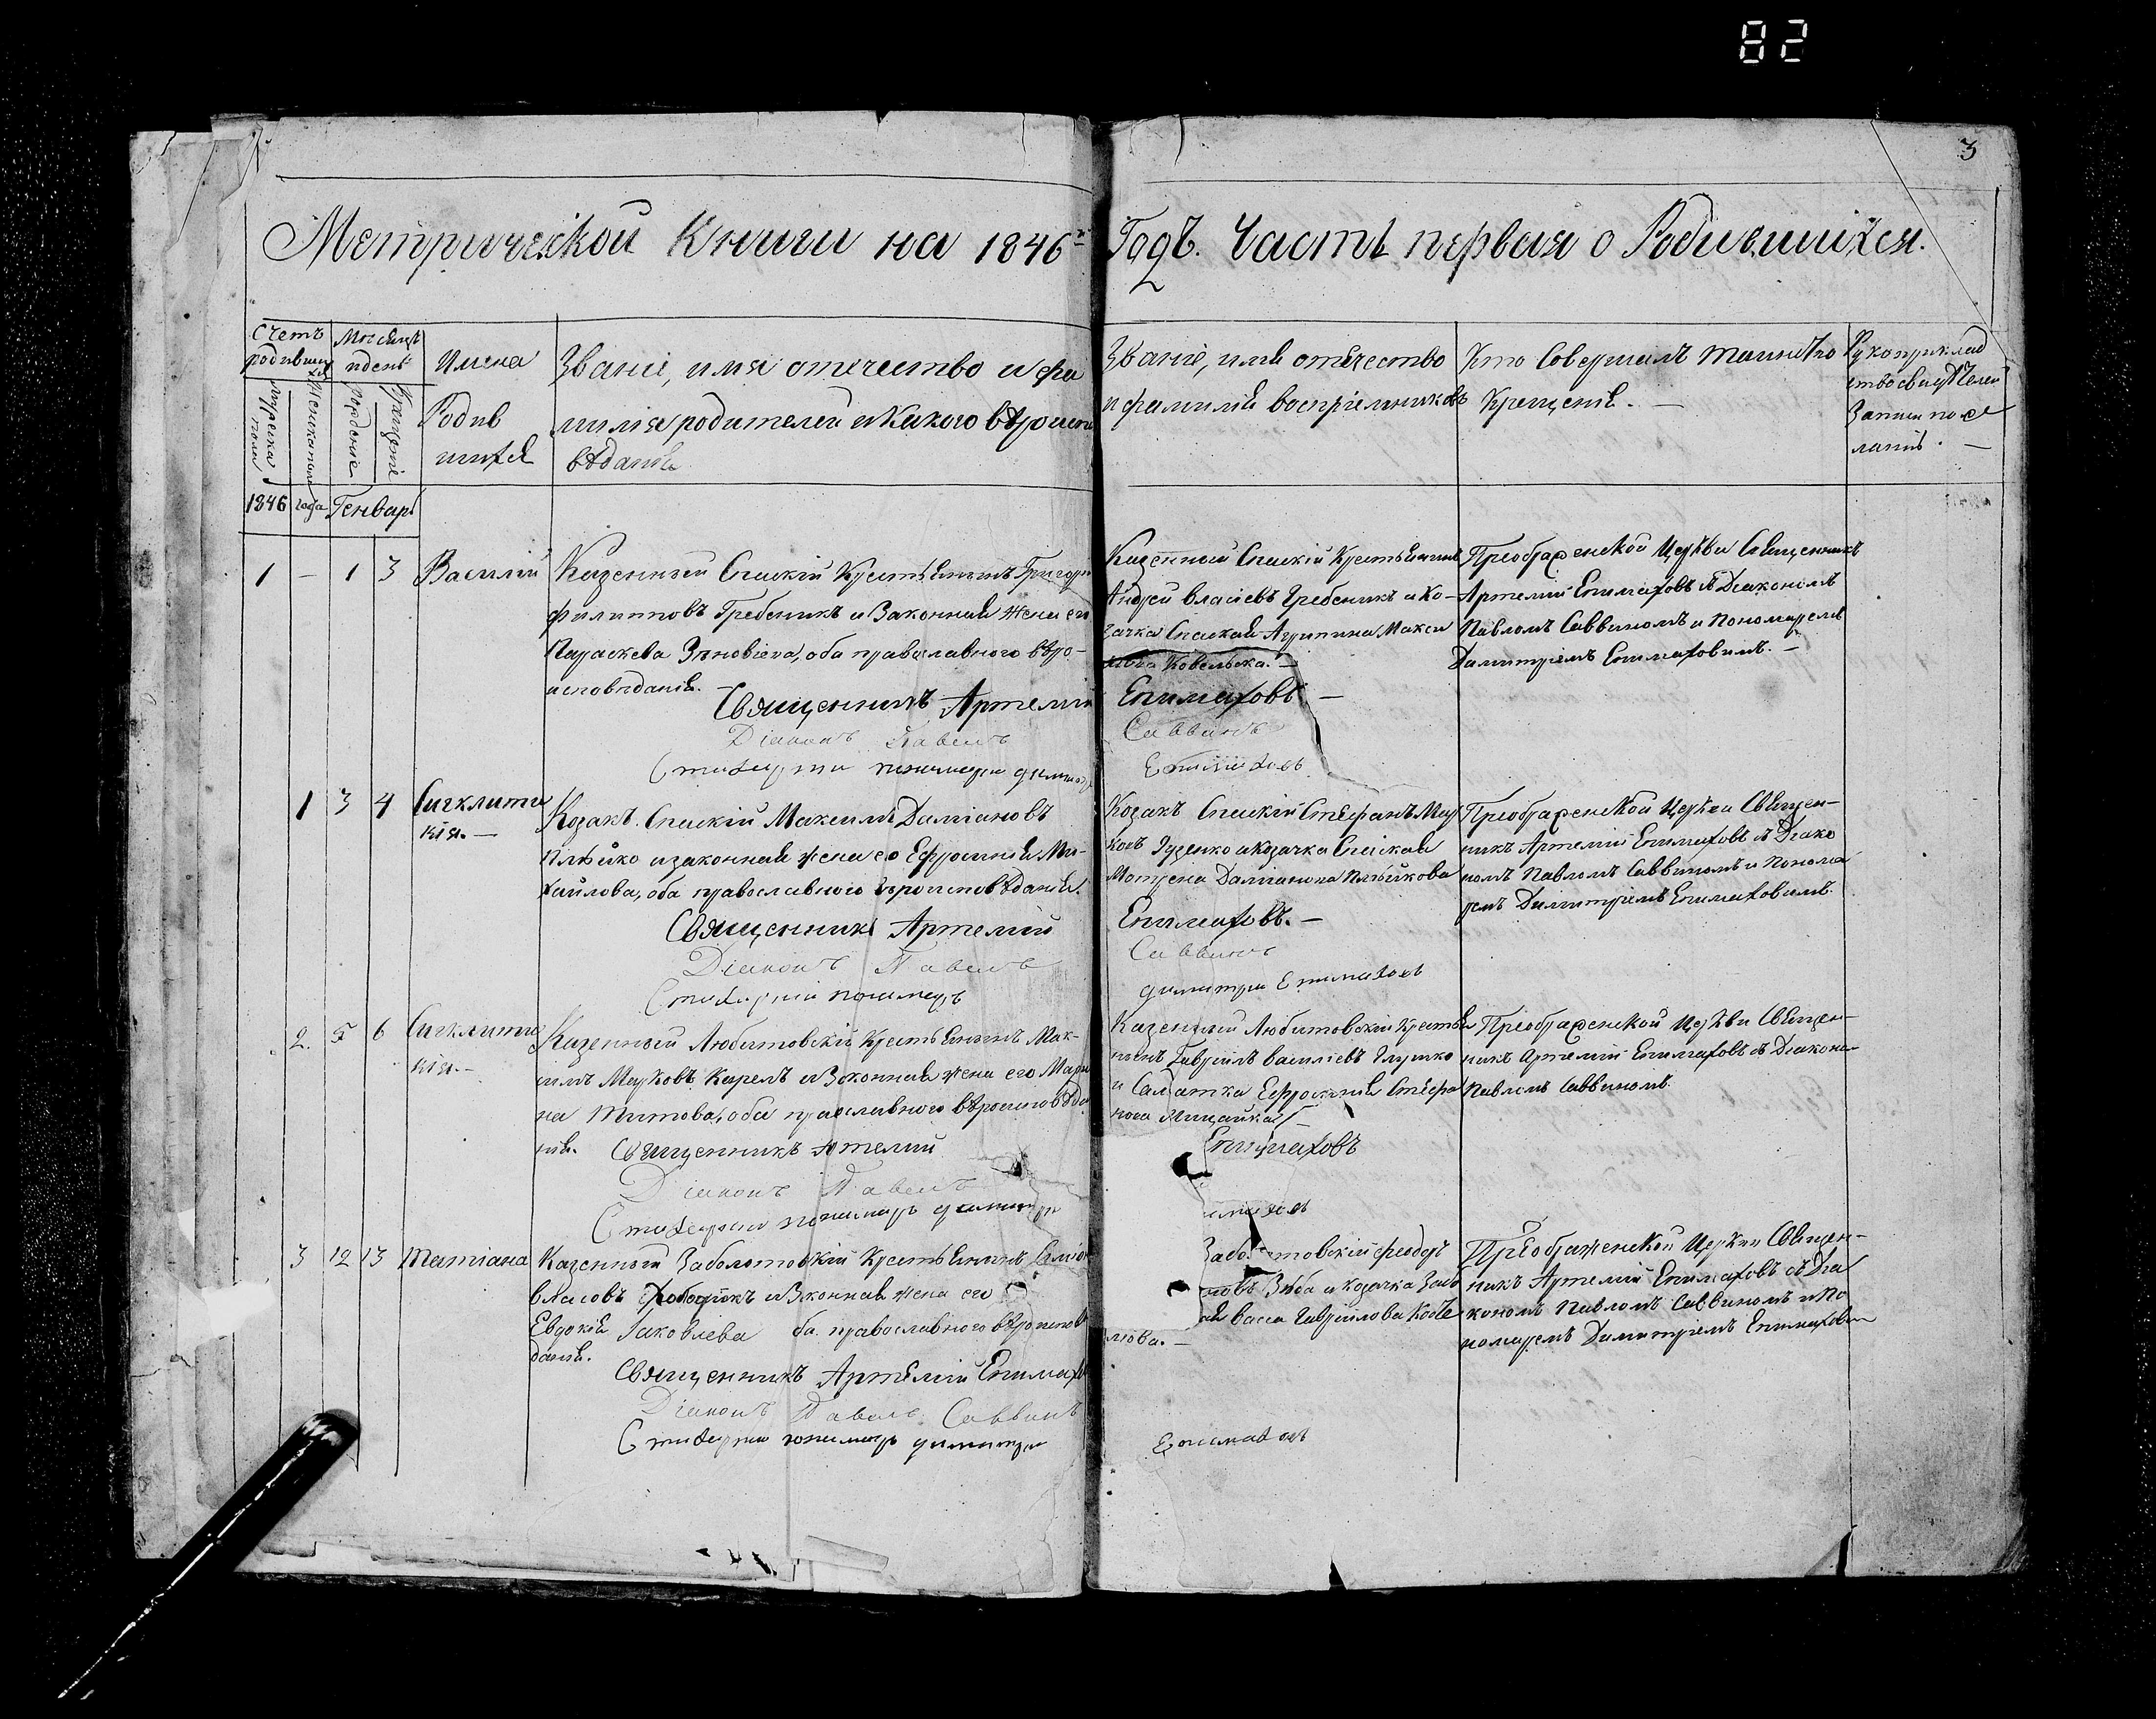 82
3
Метрической Книги на 1846й Годъ. Часть первая о Родившихся.
Счетъ родившихся
Мѣсяцъ и день
Имена Родившихся
мужеска пола
женска пола
Рожденіе
Крещеніе
Званіе, имя отечество и фа
милія родителей и Какого вѣроиспо
вѣданія
Званіе, имя отечество
и фамилія воспріемниковъ
Кто Совершалъ таинство
Крещенія. —
Рукоприклад
ство свидѣтелей
Записи по же
ланію. —
1846 года Генварь
1 — 1 3 Василій
Казенный Спаскій Крестьянинъ Григорій
Филиповъ Гребеникъ и Законная жена его
Параскева Зѣновіева, оба православнаго вѣро-
исповѣданія.
Священникъ Артемій Епимаховъ —
Діаконъ Павелъ Саввинъ
Стихарни пономарь Димитри Епимахов
Казенный Спаскій Крестьянинъ
Андрей Власіевъ Гребеникъ и Ко-
зачка Спаская Агрипина Макси
мова Ковельска. —
Преображенской Церкви Священникъ
Артемій Епимаховъ съ Діакономъ
Павломъ Саввиномъ и Пономаремъ
Димитріемъ Епимаховимъ. —
1 3 4 Сигклити
кія. —
Козакъ Спаскій Максимъ Даміановъ
Плѣйко и законная жена его Ефросинія Ми-
хайлова, оба православнаго вѣроисповѣданія.
Священникъ Артемій Епимаховъ. —
Діаконъ Павелъ Саввинъ
Стихарній пономарь Димитри Епимахов
Козакъ Спаскій Стефанъ Мар
ковъ Гузенко и Козачка Спаская
Мотрена Даміанова Плѣйкова
Преображенской Церкви Священ-
никъ Артемій Епимаховъ съ Діако
номъ Павломъ Саввиномъ и Понома
ремъ Димитріемъ Епимаховимъ.
2. 5 6 Сигклити
кія. —
Казенный Любитовскій Крестьянинъ Мак-
симъ Марковъ Карелъ и Законная жена его Мари
на Титова, оба православнаго вѣроисповѣда
нія.
Священникъ Артемій Епимаховъ
Діаконъ Павелъ
Стихарни пономарь Димитри
Казенный Любитовскій Крестья
нинъ Гавріилъ Василіевъ Глушко
и Салдатка Ефросинія Стефа
нова Мицайка —
Преображенской Церкви Священ-
никъ Артемій Епимаховъ съ Діакономъ
Павломъ Саввиномъ.
3 12 13 Татіана
Казенный Заболотовскій Крестьянинъ Симіо
Власовъ и Законная жена его
Евдокія Іаковлева ба православнаго вѣроисповѣ
данія.
Священникъ Артемій Епимахов
Діаконъ Павелъ Саввинъ
Стихарни пономарь Димитри Епимахов
Забо товскій Феодоръ
новъ Зюба и Козачка Забо
ая Васса Гавріилова Косте
люва. —
Преображенской Церкви Священ-
никъ Артемій Епимаховъ съ Діа
кономъ Павломъ Саввиномъ и По
номаремъ Димитріемъ Епимаховим